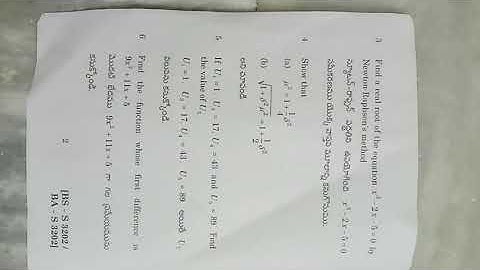 3 Find a real root of the equation x³ - 2x - 5 = 0 by
Newton-Raphson's method
న్యూటన్-రాఫ్సన్ పద్ధతిని ఉపయోగించి x³ - 2x - 5 = 0
సమీకరణము యొక్క వాస్తవ మూలాన్ని కనుగొనుము.
4 Show that
(a) μ² = 1 + 1/4 δ²
(b) √(1 + δ²μ²) = 1 + 1/2 δ²
అని చూపండి
5 If U₁ = 1, U₃ = 17, U₄ = 43 and U₅ = 89. Find
the value of U₂
U₁ = 1, U₃ = 17, U₄ = 43, U₅ = 89 అయితే U₂
విలువను కనుక్కోండి
6 Find the function whose first difference is
9x² + 11x + 5
మొదటి భేదము 9x² + 11x + 5 గా గల ప్రమేయమును
కనుక్కోండి
2
[BS - S 3202 /
BA - S 3202]